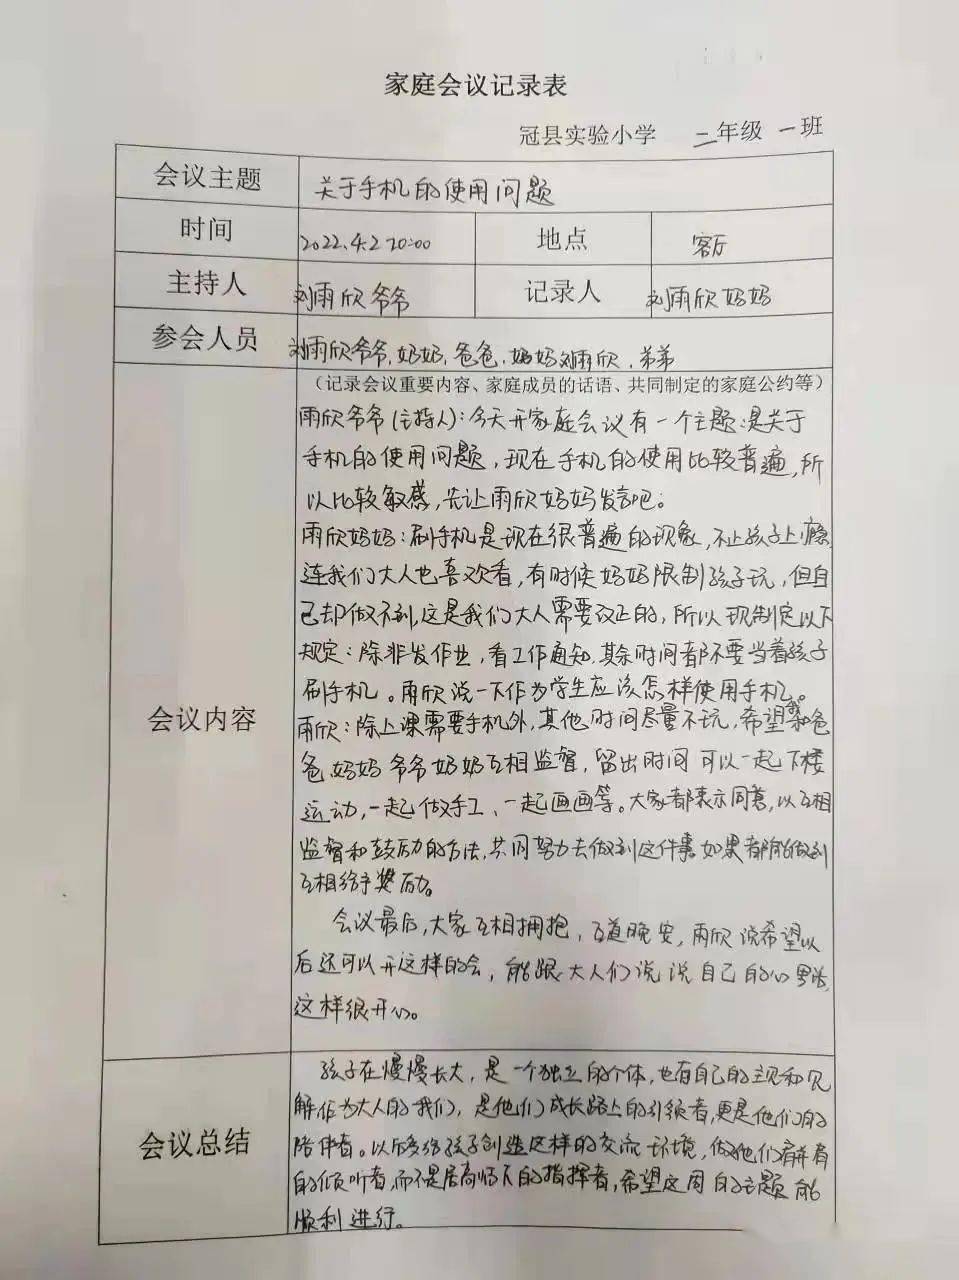 家庭会议记录表
冠县实验小学 二年级 一班
会议主题 关于手机的使用问题
时间 2022.4.2 20:00 地点 客厅
主持人 刘雨欣爷爷 记录人 刘雨欣妈妈
参会人员 刘雨欣爷爷,奶奶,爸爸,妈妈刘雨欣,弟弟
会议内容
（记录会议重要内容、家庭成员的话语、共同制定的家庭公约等）
雨欣爷爷(主持人):今天开家庭会议有一个主题:是关于
手机的使用问题,现在手机的使用比较普遍,所
以比较敏感,先让雨欣妈妈发言吧。
雨欣妈妈:刷手机是现在很普遍的现象,不止孩子上瘾
连我们大人也喜欢看,有时候妈妈限制孩子玩,但自
己却做不到,这是我们大人需要改正的,所以现制定以下
规定:除非发作业,看工作通知,其余时间都不要当着孩子
刷手机。雨欣说一下作为学生应该怎样使用手机。
雨欣:除上课需要手机外,其他时间尽量不玩,希望我和爸
爸妈妈爷爷奶奶互相监督,留出时间可以一起下楼
运动,一起做手工、一起画画等。大家都表示同意,以互相
监督和鼓励的方法,共同努力去做到这件事如果都能做到
互相给予奖励。
会议最后,大家互相拥抱,互道晚安,雨欣说希望以
后还可以开这样的会,能跟大人们说说自己的心里话,
这样很开心。
会议总结
孩子在慢慢长大,是一个独立的个体,也有自己的主观和见
解作为大人的我们,是他们成长路上的引领者,更是他们的
陪伴者。以后多给孩子创造这样的交流环境,做他们
的倾听者,而不是居高临下的指挥者,希望这周的主题能
顺利进行。